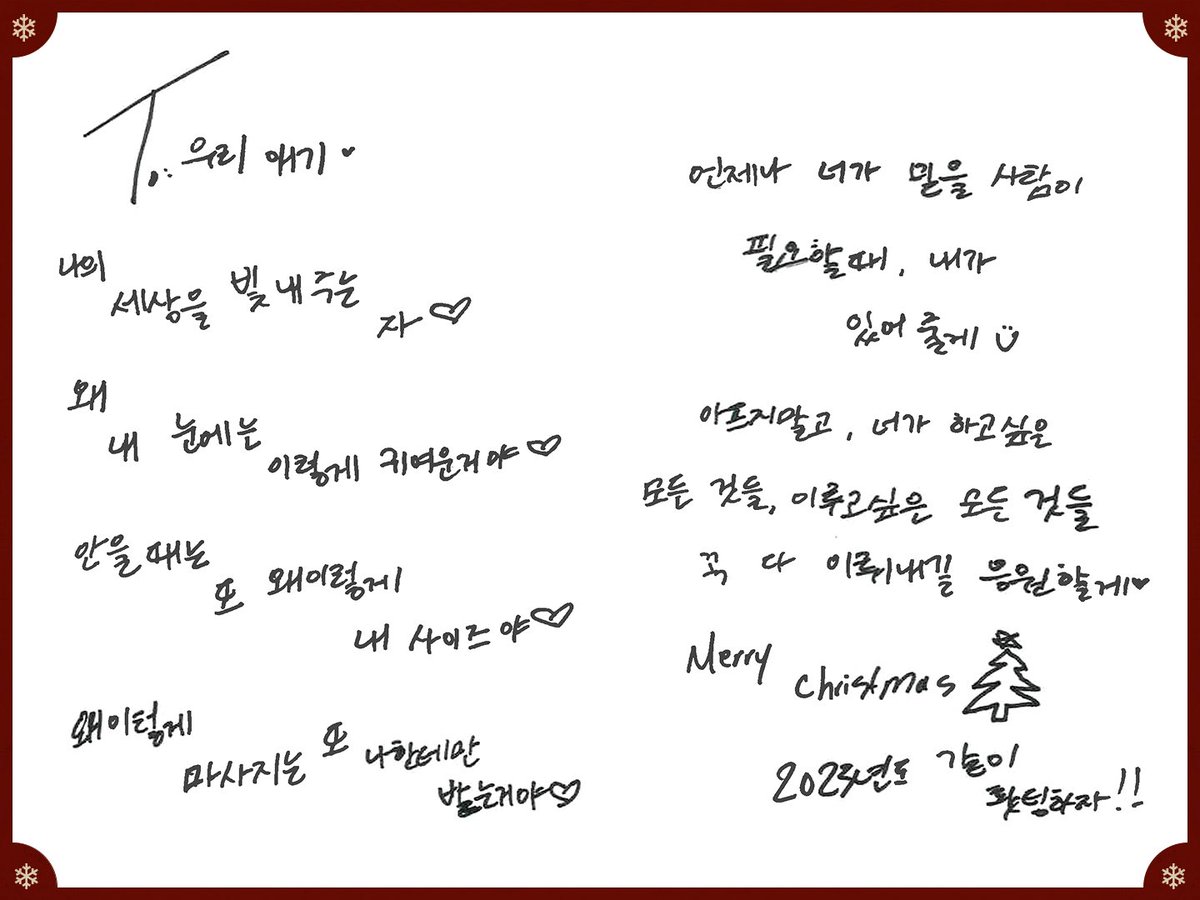 To. 우리 애기♥
나의
세상을 빛내주는
자♡
왜
내 눈에는
이렇게 귀여운거야♡
안을 때는
또 왜이렇게
내 사이즈야♡
왜이렇게
마사지는 또 나한테만
받는거야♡
언제나 너가 믿을 사람이
필요할때, 내가
있어 줄게
아프지말고, 너가 하고싶은
모든 것들, 이루고싶은 모든 것들
꼭 다 이뤄내길 응원할게♥
Merry
christmas
2023년도 같이
화이팅하자!!